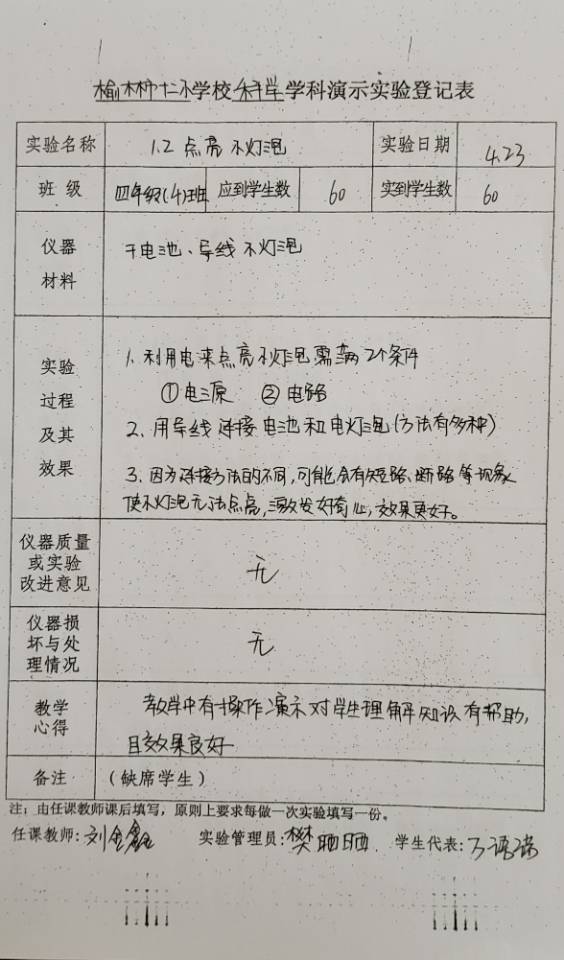 榆林市十二小学校科学学科演示实验登记表
实验名称 1.2 点亮小灯泡 实验日期 4.23
班级 四年级(4)班 应到学生数 60 实到学生数 60
仪器
材料
干电池、导线 小灯泡
实验
过程
及其
效果
1. 利用电来点亮小灯泡需满2个条件
①电源 ②电路
2. 用导线连接电池和电灯泡(方法有多种)
3. 因为连接方法的不同,可能会有短路、断路等现象
使小灯泡无法点亮,激发好奇心,效果更好。
仪器质量
或实验
改进意见
无
仪器损
坏与处
理情况
无
教学
心得
教学中有操作演示对学生理解知识有帮助,
且效果良好
备注 (缺席学生)
注:由任课教师课后填写,原则上要求每做一次实验填写一份。
任课教师:刘金鑫 实验管理员:樊晒晒 学生代表: